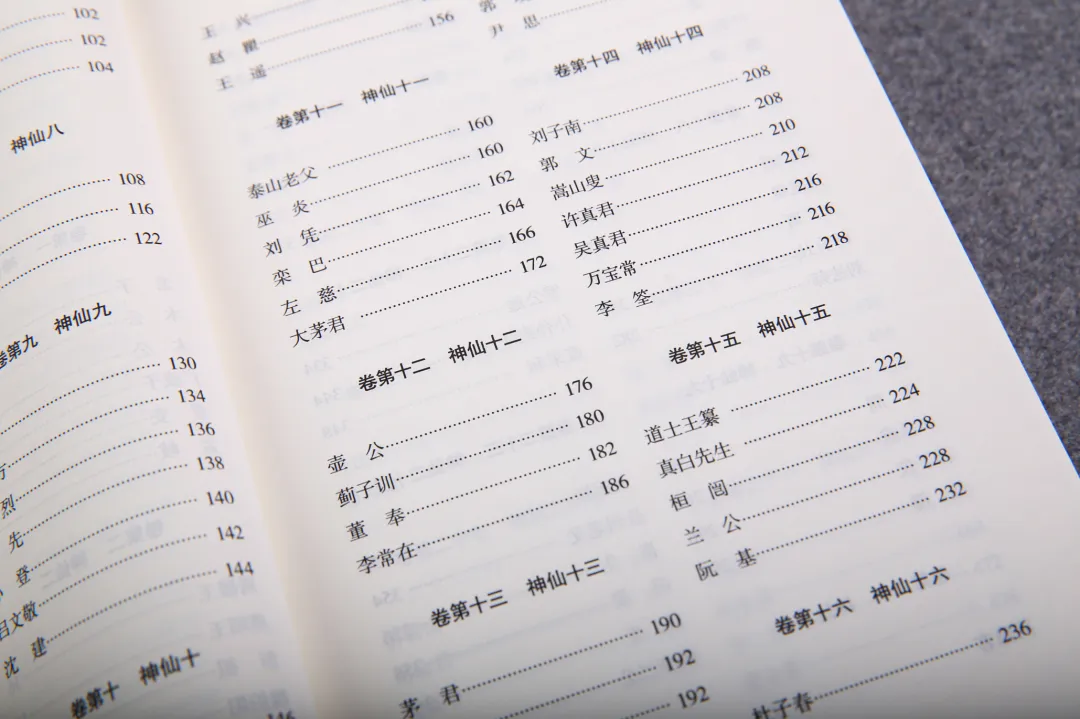 102
102
104
神仙八
108
116
122
卷第九 神仙九
130
134
136
烈 138
先 140
登 142
吕文敬 144
沈 建
卷第十 神仙十
146
王 兴
赵 瞿 156
王 遥
卷第十一 神仙十一
泰山老父 160
巫 炎 160
刘 凭 162
栾 巴 164
左 慈 166
大茅君 172
卷第十二 神仙十二
壶 公 176
蓟子训 180
董 奉 182
李常在 186
卷第十三 神仙十三
茅 君 190
192
192
郭
尹 思
卷第十四 神仙十四
刘子南 208
郭 文 208
嵩山叟 210
许真君 212
吴真君 216
万宝常 216
李 筌 218
卷第十五 神仙十五
道士王纂 222
真白先生 224
桓 闿 228
兰 公 228
阮 基 232
卷第十六 神仙十六
杜子春 236